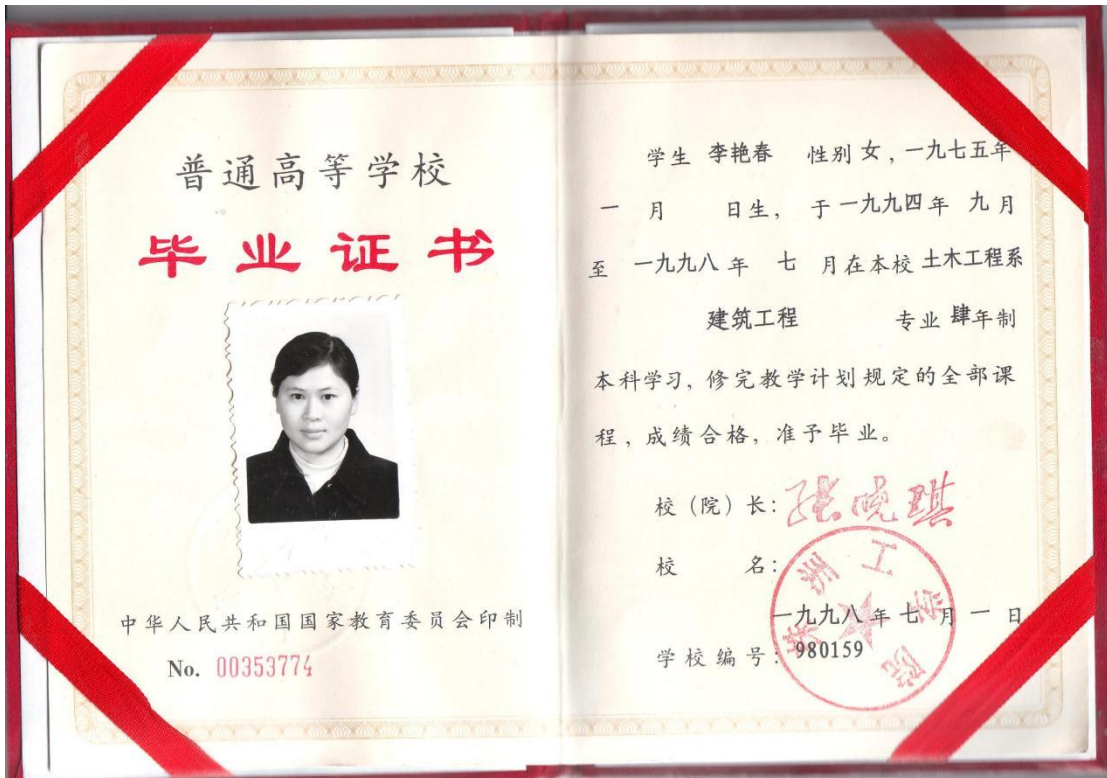 普通高等学校
毕业证书
中华人民共和国国家教育委员会印制
No. 00353774
学生 李艳春 性别 女，一九七五年
一 月 日生， 于一九九四年 九月
至 一九九八 年 七 月在本校 土木工程系
建筑工程 专业 肆年制
本科学习，修完教学计划规定的全部课
程，成绩合格，准予毕业。
校（院）长：张晓琪
校 名：
株洲工学院
一九九八年七月一日
学校编号：980159